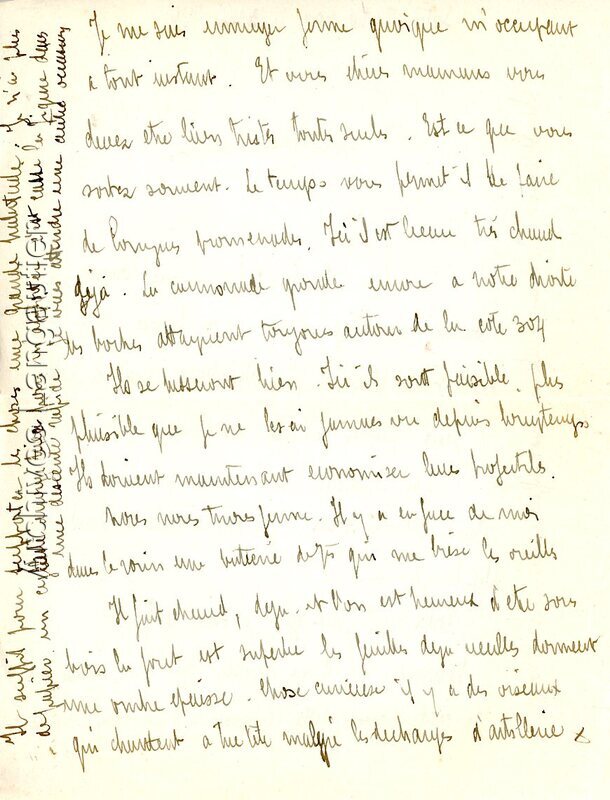 Je me suis ennuyer ferme quoique m'occupant
a tout instant. Et vous chères mamans vous
devez etre bien tristes toutes seules. Est ce que vous
sortez souvent. Le temps vous permet il de faire
de longues promenades. Ici il est beau très chaud
déjà. La cannonade gronde encore a notre droite
les boches attaquent toujours autour de la cote 304
Ils se lasseront bien. Ici ils sont paisible, plus
paisible que je ne les ai jamais vu depuis longtemps
Ils doivent maintenant economiser leurs projectiles.
Nous nous tirons ferme. Il y a en face de moi
dans le ravin une batterie de 75 qui me brise les oreilles
Il fait chaud, deja et l'on est heureux d'etre sous
bois la foret est superbe les feuilles deja donnent
une ombre epaisse. Chose curieuse il y a des oiseaux
qui chantent a tue tete malgré les decharges d'artillerie
Il suffit pour supporter la chose une grande habitude. Je n'ai plus
de papier. un
une descente rapide. Je vais attendre une autre occasion